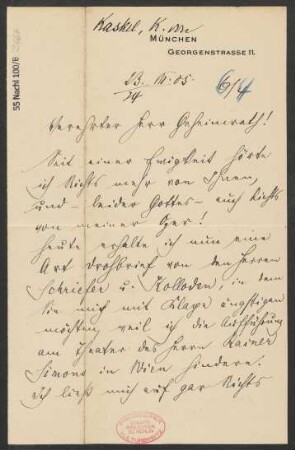 Kaskel, K. von
MÜNCHEN
GEORGENSTRASSE 11.
55 Nachl 100/B
23. III. 05
24
6/4
Verehrter Herr Geheimrath!
Seit einer Ewigkeit hörte
ich Nichts mehr von Ihnen,
und – leider Gottes – auch Nichts
von meiner Oper!
Heute erhalte ich nun eine
Art Drohbrief von den Herren
Schriefer u. Kolloden, in dem
sie mich mit Klage ängstigen
möchten, weil ich die Aufführung
am Theater des Herrn Rainer
Simons in Wien hindere.
Ich ließ mich auf gar Nichts